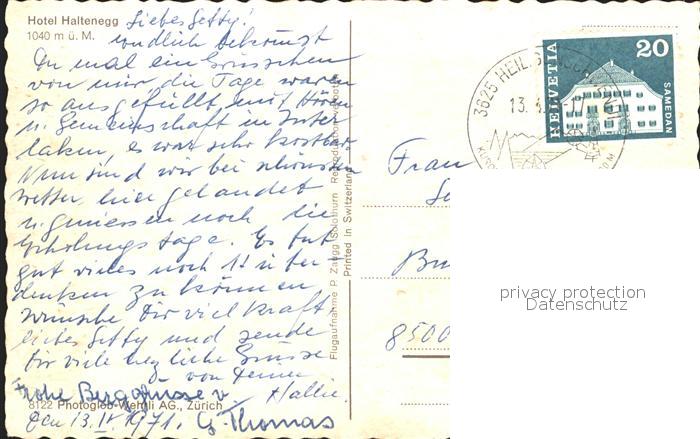 Hotel Haltenegg
1040 m ü. M.
Liebes Getty!
endlich bekommst
Du mal ein Grüsschen
von mir, die Tage waren
so ausgefüllt mit Hören
u. Gemeinschaft in Inter
laken, es war sehr kostbar
Nun sind wir bei schönsten
Wetter hier gelandet
u. geniessen noch die
Erholungstage. Es tut
gut vieles noch über
denken zu können
wünsche Dir viel Kraft
liebes Getty und sende
Dir viele herzliche Grüsse
von Deiner
Hallie.
Frohe Berggrüsse v.
8122 Photoglob-Wehrli AG., Zürich
den 13.IV.1971. G. Thomas
Flugaufnahme P. Zaugg Solothurn Reproduktion verboten
Printed in Switzerland
3625 HEILIG
13.4.
HELVETIA
20
SAMEDAN
Frau
8500
privacy protection
Datenschutz